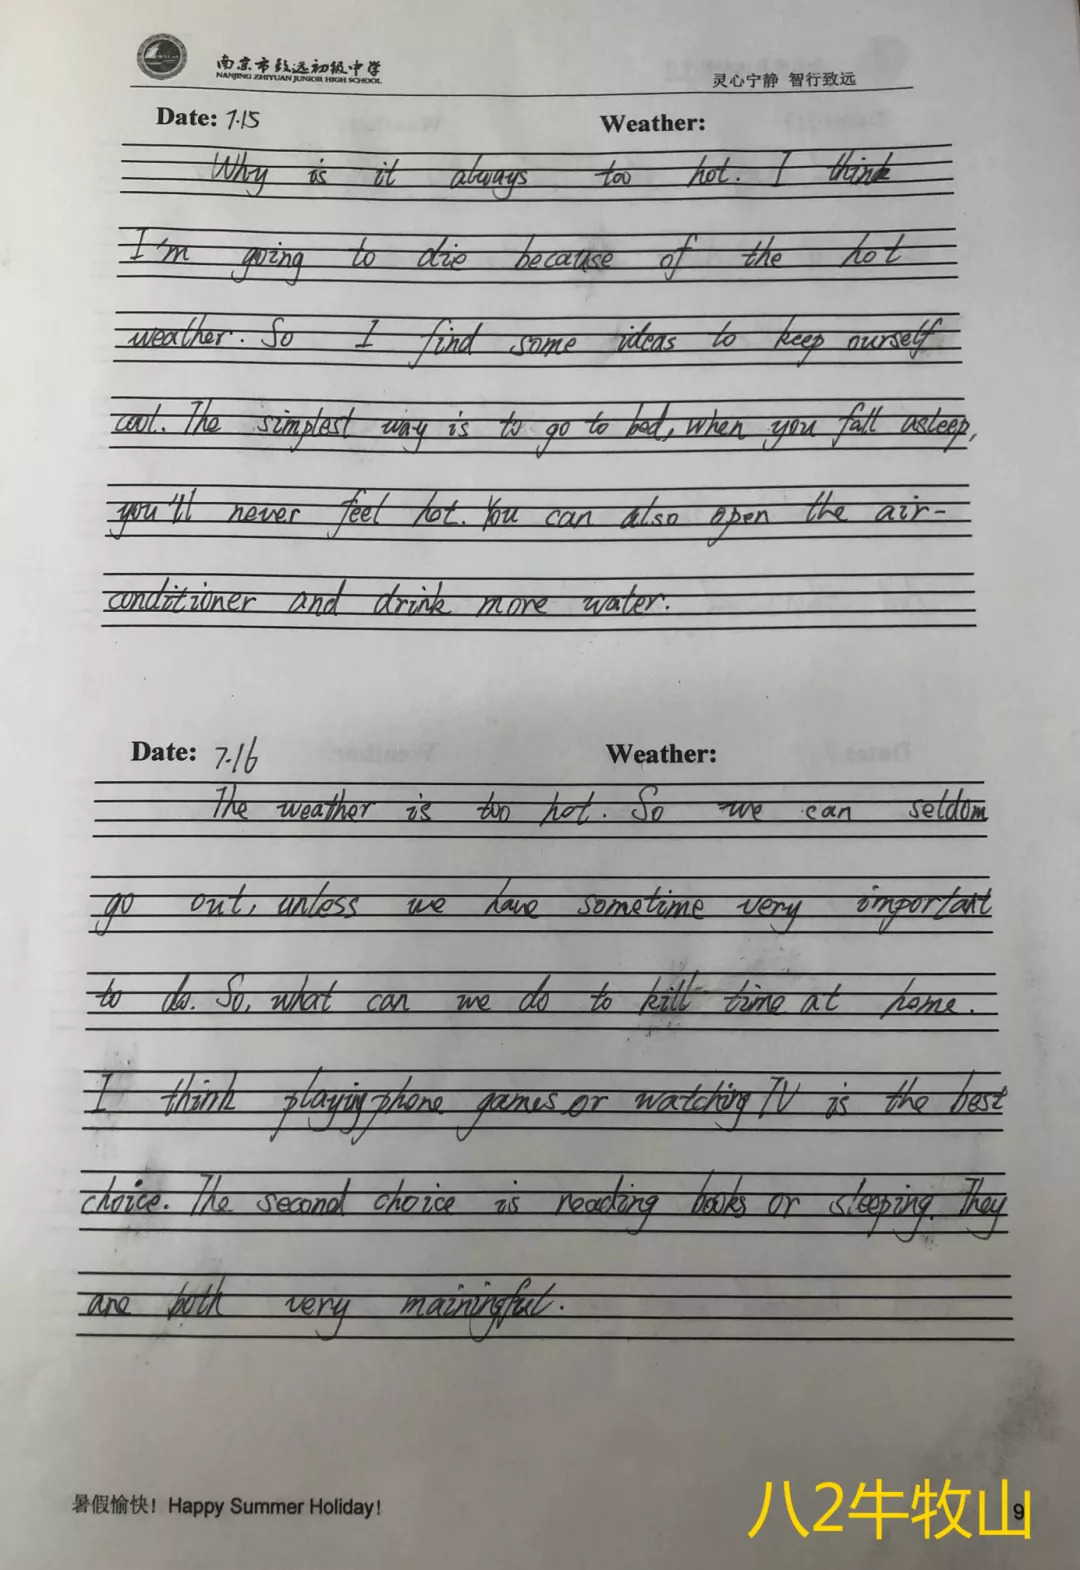 南京市致远初级中学
NANJING ZHIYUAN JUNIOR HIGH SCHOOL
灵心宁静 智行致远
Date: 7.15 Weather:
Why is it always too hot. I think
I'm going to die because of the hot
weather. So I find some ideas to keep ourself
cool. The simplest way is to go to bed, when you fall asleep,
you'll never feel hot. You can also open the air-
conditioner and drink more water.
Date: 7.16 Weather:
The weather is too hot. So we can seldom
go out, unless we have sometime very important
to do. So, what can we do to kill time at home.
I think playing phone games or watching TV is the best
choice. The second choice is reading books or sleeping. They
are both very mainingful.
暑假愉快! Happy Summer Holiday!
9
八2牛牧山